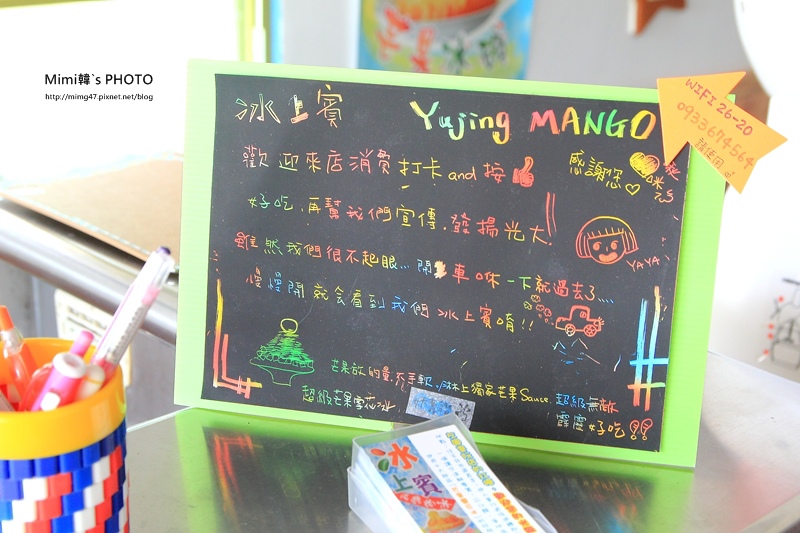 Mimi韓`s PHOTO
http://mimg47.pixnet.net/blog
冰上賓 Yujing MANGO
歡迎來店消費打卡and按
感謝您
好吃，再幫我們宣傳，發揚光大
雖然我們很不起眼...開車咻一下就過去了....
慢慢開就会看到我們冰上賓唷!!
YAYA
芒果放的量,不手軟,冰上獨家芒果Sauce.超級無敵
超級芒果雪花冰
霹靂好吃!!
WIFI 26-20
0933674564
請使用
冰上賓